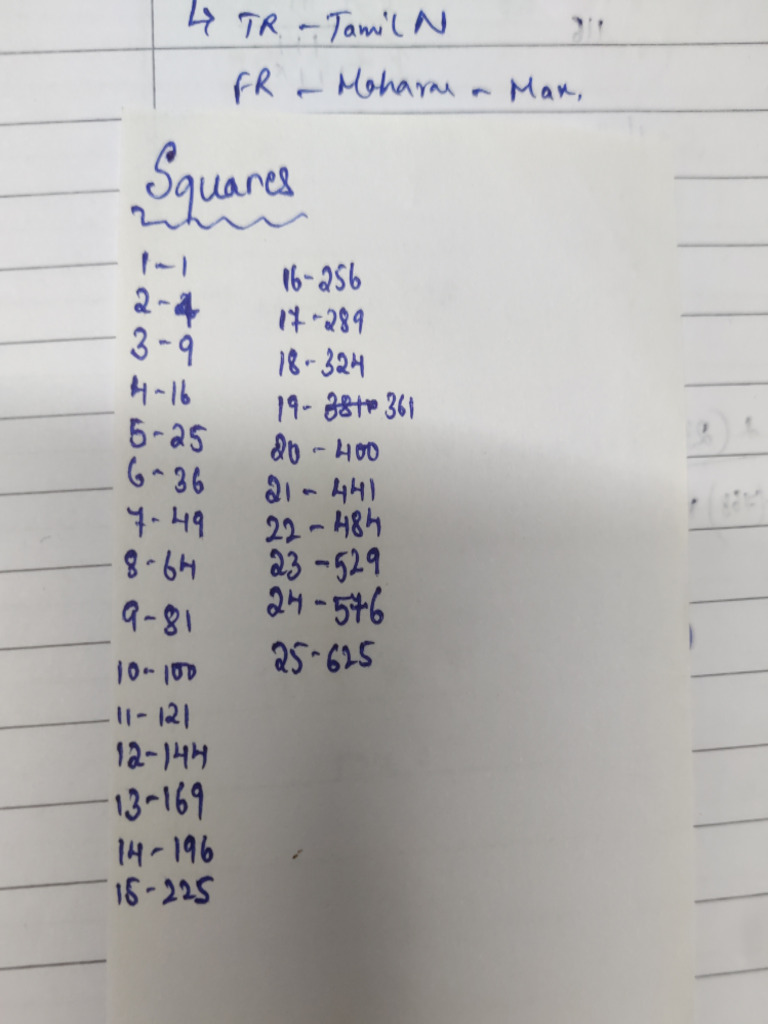 ↳ TR - Tamil N
FR - Maharas - Max.
Squares
1-1
2-4
3-9
4-16
5-25
6-36
7-49
8-64
9-81
10-100
11-121
12-144
13-169
14-196
15-225
16-256
17-289
18-324
19- 361
20-400
21-441
22-484
23-529
24-576
25-625